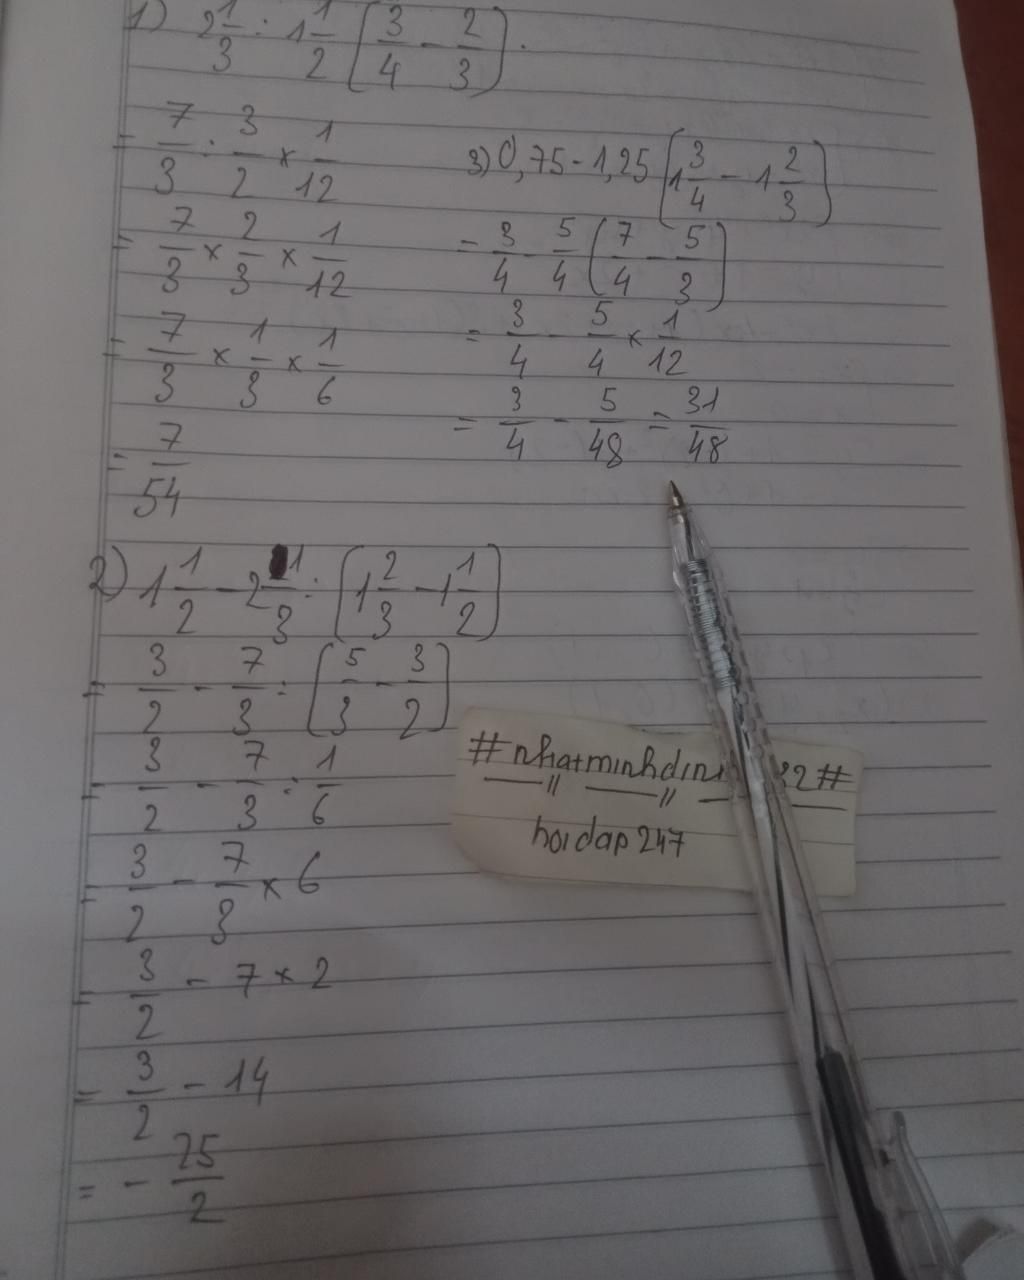 1) 2 1/3 : 1 1/2 (3/4 - 2/3).
= 7/3 : 3/2 × 1/12
= 7/3 × 2/3 × 1/12
= 7/3 × 1/3 × 1/6
= 7/54
3) 0,75 - 1,25 (1 3/4 - 1 2/3)
= 3/4 - 5/4 (7/4 - 5/3)
= 3/4 - 5/4 × 1/12
= 3/4 - 5/48 = 31/48
2) 1 1/2 - 2 1/3 : (1 2/3 - 1 1/2)
= 3/2 - 7/3 : (5/3 - 3/2)
= 3/2 - 7/3 : 1/6
= 3/2 - 7/3 × 6
= 3/2 - 7 × 2
= 3/2 - 14
= - 25/2
hoidap247